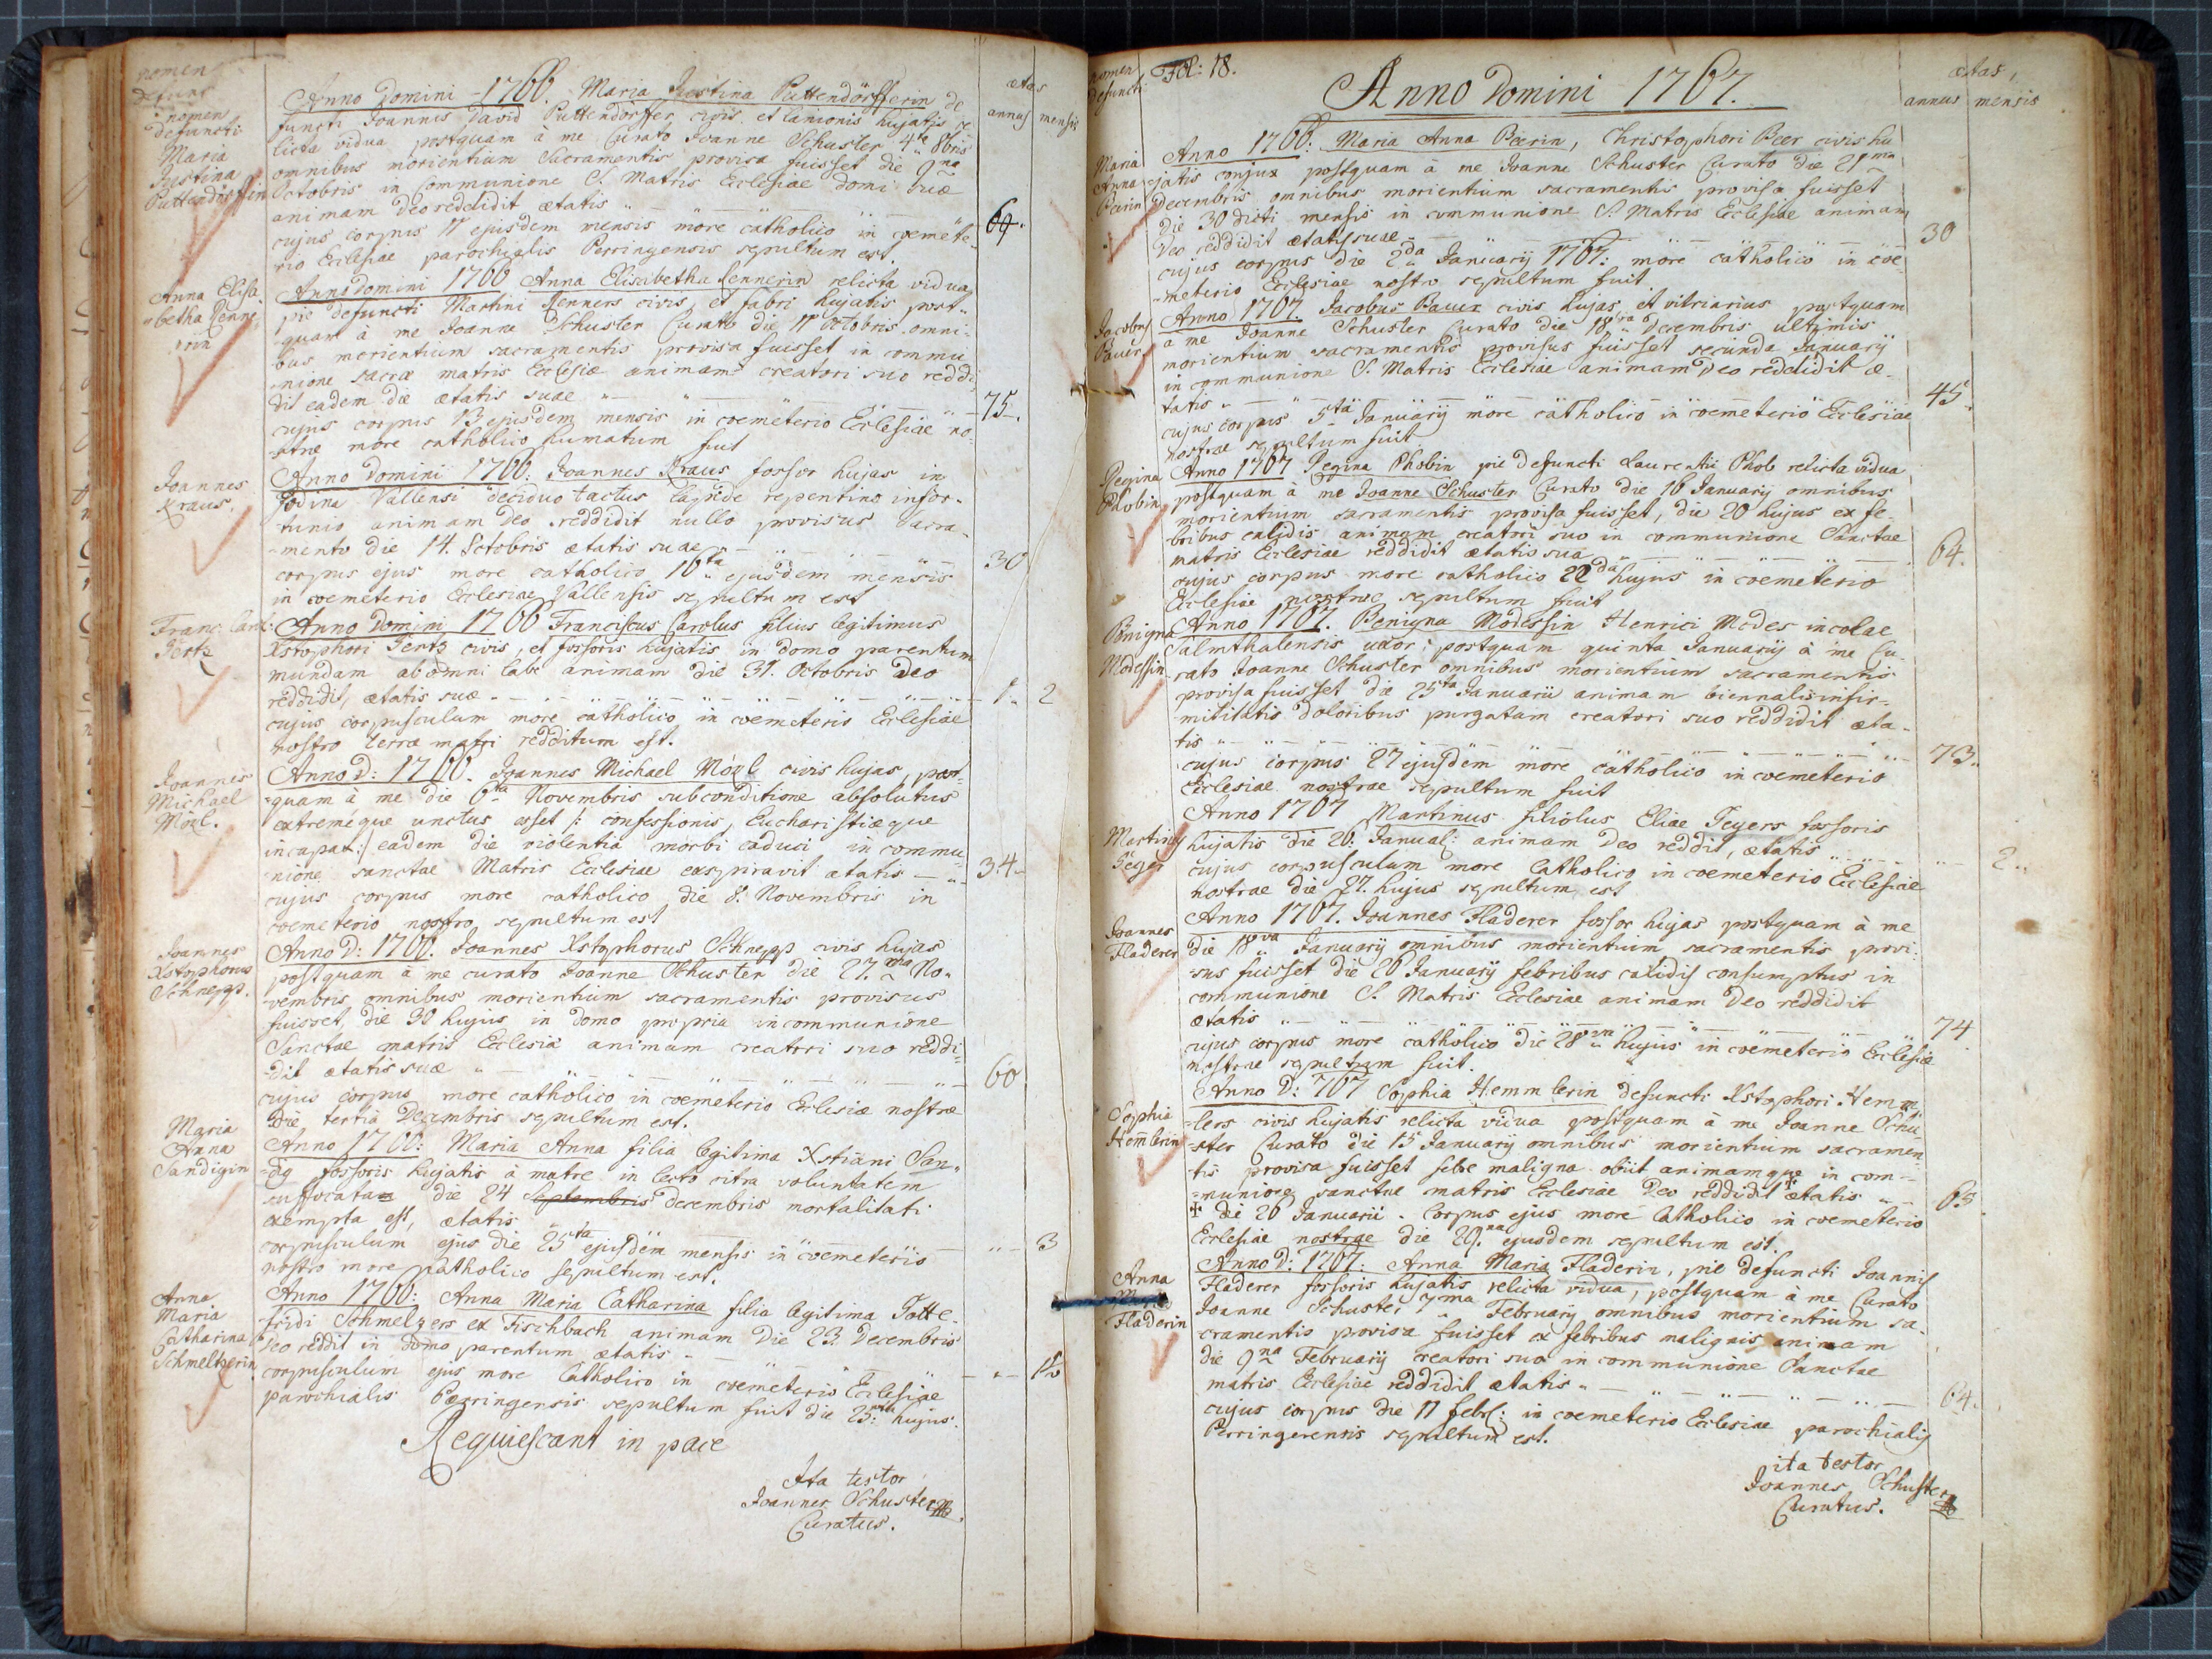 nomen
defunc
nomen
defuncti
ætas
annus mensis
Maria
Justina
Puttendörfferin
Anno Domini 1766. Maria Justina Puttendörfferin de
functi Joannis David Puttendörffer civis et lanionis hujatis re
licta vidua postquam à me Curato Joanne Schuster 4ta 8bris
omnibus morientium Sacramentis provisa fuisset die 9na
Octobris in Communione S. Matris Ecclesiae domi suæ
animam Deo reddidit ætatis
64.
cujus corpus 11 ejusdem mensis more catholico in coemete-
rio Ecclesiae parochialis Perringensis sepultum est.
Anna Elisa-
betha Renne-
rin
Anno Domini 1766 Anna Elisabetha Rennerin relicta vidua
pie defuncti Martini Renners civis, et fabri hujatis post-
quam à me Joanne Schuster Curato die 11 Octobris omni-
bus morientium sacramentis provisa fuisset in commu
nione sacræ matris Ecclesiæ animam creatori suo reddi-
dit eadem die ætatis suae
75.
cujus corpus 13 ejusdem mensis in coemeterio Ecclesiæ no-
stræ more catholico humatum fuit
Joannes
Kraus.
Anno Domini 1766: Joannes Kraus fossor hujas in
fodina Vallensi deciduo tactus lapide repentino infor-
tunio animam Deo reddidit nullo provisus Sacra-
mento die 14. Octobris ætatis suae
30
corpus ejus more catholico 16ta ejusdem mensis
in coemeterio Ecclesiae Vallensis sepultum est
Franc: Carol:
Pertz
Anno Domini 1766 Franciscus Carolus filius legitimus
Xstophori Pertz civis, et fossoris hujatis in domo parentum
mundam ab omni labe animam die 31. Octobris Deo
reddidit, ætatis suæ
1. 2
cujus corpusculum more catholico in coemeterio Ecclesiae
nostro terræ matri redditum est.
Joannes
Michael
Mözl.
Anno D: 1766. Joannes Michael Mözl civis hujas, post-
quam à me die 6ta Novembris sub conditione absolutus
extremeque unctus esset /: confessionis, Eucharistiæque
incapax:/ eadem die violentia morbi caduci in commu-
nione sanctae Matris Ecclesiae exspiravit ætatis
34.
cujus corpus more catholico die 8. Novembris in
coemeterio nostro sepultum est
Joannes
Xstophorus
Schnepp.
Anno D: 1766. Joannes Xstophorus Schnepp civis hujas
postquam à me curato Joanne Schuster die 27.ma No-
vembris omnibus morientium sacramentis provisus
fuisset die 30 hujus in domo propria in communione
Sanctae matris Ecclesiæ animam creatori suo reddi-
dit ætatis suæ
60
cujus corpus more catholico in coemeterio Ecclesiæ nostræ
die tertia Decembris sepultum est.
Maria
Anna
Sandigin
Anno 1766: Maria Anna filia legitima Xstiani San-
dig fossoris hujatis à matre in lecto citra voluntatem
suffocata die 24 Septembris decembris mortalitati
exempta est, ætatis
3
corpusculum ejus die 25ta ejusdem mensis in coemeterio
nostro more Catholico sepultum est.
Anna
Maria
Catharina
Schmeltzerin
Anno 1766: Anna Maria Catharina filia legitima Gotte-
fridi Schmelzers ex Fischbach animam die 23. Decembris
Deo reddit in domo parentum ætatis
corpusculum ejus more Catholico in coemeterio Ecclesiae
parochialis Pærringensis sepultum fuit die 25: hujus.
Requiescant in pace
Ita testor
Joannes Schuster
Curatus.
nomen
defuncti
Fol: 18.
Anno Domini 1767.
ætas,
annus mensis
Maria
Anna
Peerin
Anno 1766: Maria Anna Beerin, Christophori Beer civis hu
jatis conjux postquam à me Joanne Schuster Curato die 21ma
decembris omnibus morientium sacramentis provisa fuisset
die 30 dicti mensis in communione S. Matris Ecclesiae animam
Deo reddidit ætatis suae
30
cujus corpus die 2da Januarij 1767: more catholico in coe-
meterio Ecclesiae nostro sepultum fuit
Jacobus
Pauer
Anno 1767. Jacobus Bauer civis hujas, et vitriarius postquam
à me Joanne Schuster Curato die 18va Decembris ultimis
morientium sacramentis provisus fuisset secunda Januarij
in communione S. Matris Ecclesiae animam Deo reddidit æ-
tatis
45.
cujus corpus 5ta Januarij more catholico in coemeterio Ecclesiae
nostrae sepultum fuit
Regina
Phobin
Anno 1767 Regina Phobin pie defuncti Laurentii Phob relicta vidua
postquam à me Joanne Schuster Curato die 16 Januarij omnibus
morientium sacramentis provisa fuisset, die 20 hujus ex fe-
bribus calidis animam creatori suo in communione Sanctae
matris Ecclesiae reddidit ætatis sua
64.
cujus corpus more catholico 22da hujus in coemeterio
Ecclesiae nostrae sepultum fuit
Benigna
Modessin
Anno 1767. Benigna Modessin Henrici Modes incolae
Salmthalensis uxor; postquam quinta Januarij à me Cu-
rato Joanne Schuster omnibus morientium sacramentis
provisa fuisset die 25ta Januarii animam biennalis infir-
mitatis doloribus purgatam creatori suo reddidit æta-
tis
73.
cujus corpus 27 ejusdem more catholico in coemeterio
Ecclesiae nostrae sepultum fuit
Martinus
Geyer
Anno 1767 Martinus filiolus Eliae Geyers fossoris
hujatis die 26. Januar: animam Deo reddit, ætatis
2
cujus corpusculum more Catholico in coemeterio Ecclesiae
nostrae die 27. hujus sepultum est
Joannes
Fladerer
Anno 1767. Joannes Fladerer fossor hujas postquam à me
die 18va Januarij omnibus morientium sacramentis provi-
sus fuisset die 26 Januarij febribus calidis consumptus in
communione S. Matris Ecclesiae animam Deo reddidit
ætatis
74
cujus corpus more catholico die 28va hujus in coemeterio Ecclesiæ
nostrae sepultum fuit.
Sophia
Hemlerin
Anno D: 767 Sophia Hemmlerin defuncti Xstophori Hemm-
lers civis hujatis relicta vidua postquam à me Joanne Schu-
ster Curato die 15 Januarij omnibus morientium sacramen-
tis provisa fuisset febre maligna obiit animamque in com-
munione sanctae matris Ecclesiae Deo reddidit ætatis
65
die 26 Januarii. Corpus ejus more Catholico in coemeterio
Ecclesiae nostrae die 29.na ejusdem sepultum est.
Anna
Maria
Fladerin
Anno D: 1767: Anna Maria Fladerin, pie defuncti Joannis
Fladerer fossoris hujatis relicta vidua, postquam à me Curato
Joanne Schuster 7ma Februarij omnibus morientium sa-
cramentis provisa fuisset ex febribus malignis animam
die 9na Februarij creatori suo in communione Sanctae
matris Ecclesiae reddidit ætatis
64.
cujus corpus die 11 febr: in coemeterio Ecclesiae parochialis
Perringerensis sepultum est.
ita testor
Joannes Schuster
Curatus.